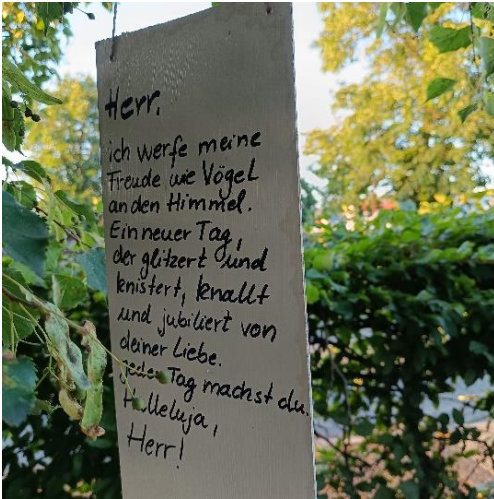 Herr,
ich werfe meine
Freude wie Vögel
an den Himmel.
Ein neuer Tag,
der glitzert und
knistert, knallt
und jubiliert von
deiner Liebe.
jeden Tag machst du.
Halleluja,
Herr!